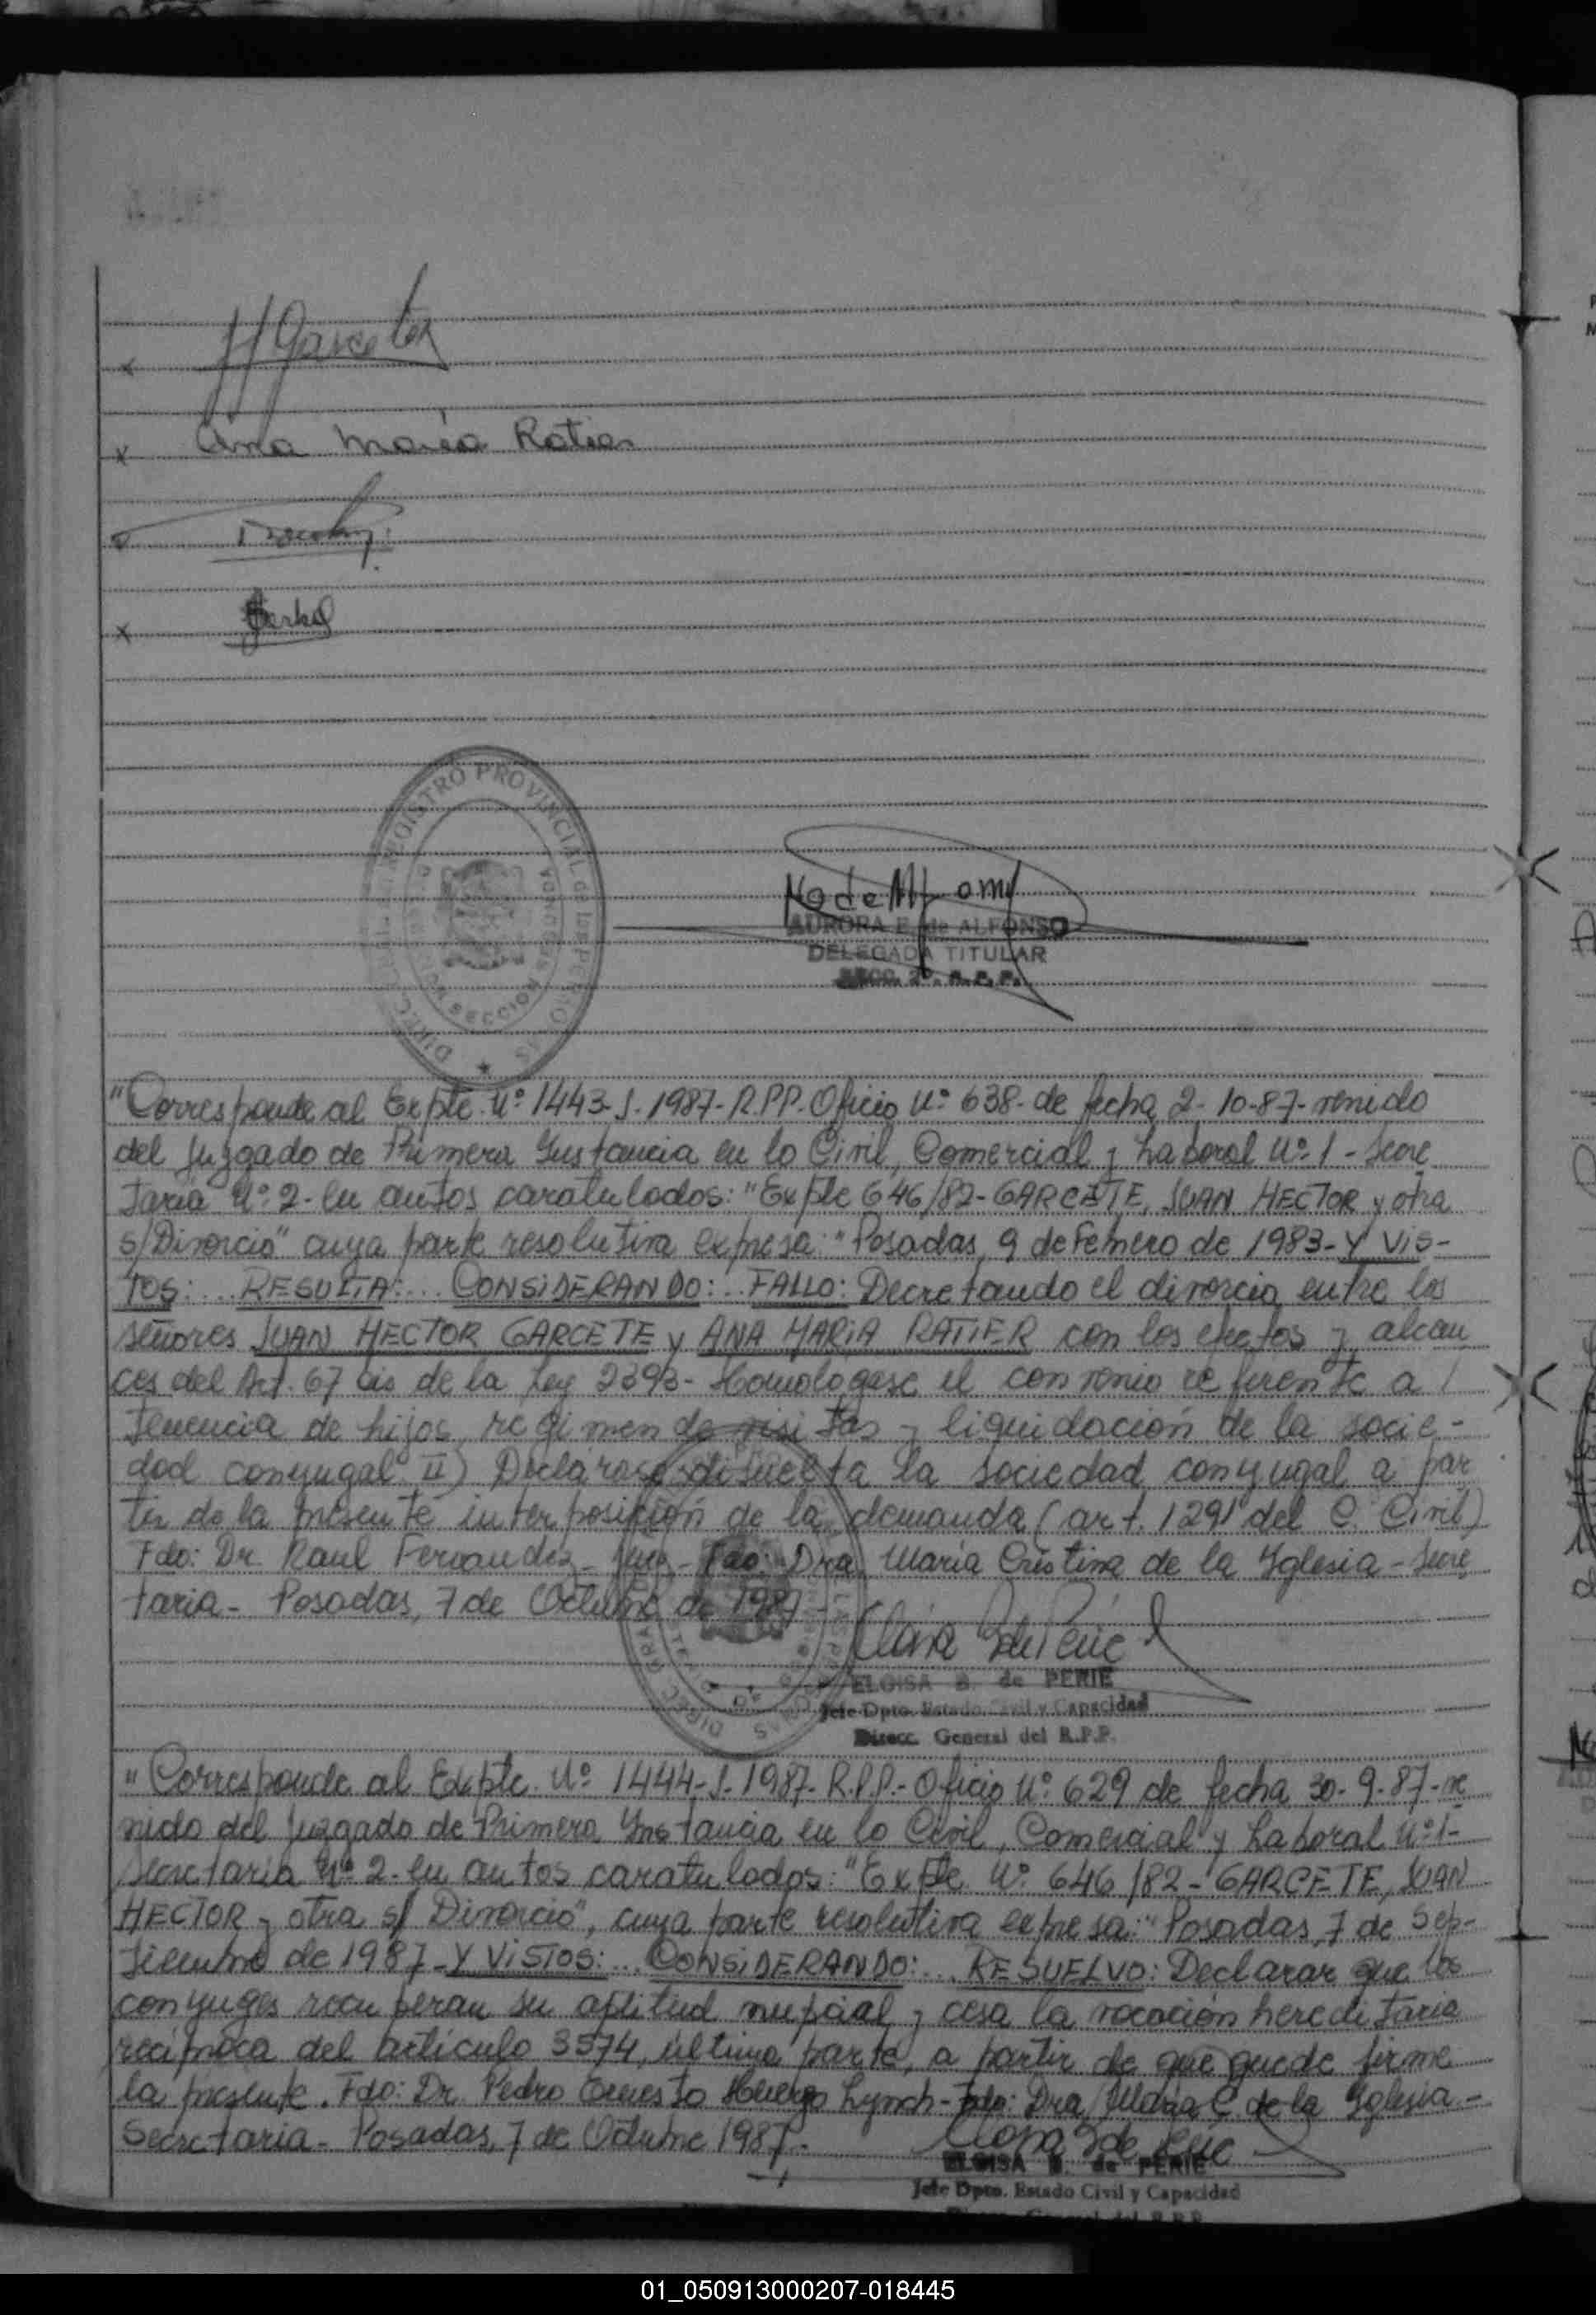 Garcete
Ana María Ratier
AURORA E. de ALFONSO
DELEGADA TITULAR
SECC. 2º. R.P.P.
REGISTRO PROVINCIAL de las PERSONAS
SECCION
"Corresponde al Expte. Nº 1443-J-1987-R.P.P. Oficio Nº 638- de fecha 2-10-87- venido
del Juzgado de Primera Instancia en lo Civil, Comercial y Laboral Nº 1 - Secre
taría Nº 2- en autos caratulados: "Expte 646/82- GARCETE, JUAN HECTOR y otra
s/Divorcio" cuya parte resolutiva expresa: "Posadas, 9 de Febrero de 1983- Y VIS-
TOS:... RESULTA:... CONSIDERANDO:... FALLO: Decretando el divorcio entre los
señores JUAN HECTOR GARCETE y ANA MARIA RATIER con los efectos y alcan
ces del Art. 67 bis de la Ley 2393- Homologase el convenio referente a
tenencia de hijos, regimen de visitas y liquidación de la socie-
dad conyugal II) Declarase disuelta la sociedad conyugal a par
tir de la presente interposición de la demanda (art. 1291 del C. Civil)
Fdo: Dr. Raul Fernandez - Juez - Fdo: Dra. María Cristina de la Iglesia - Secre
taria - Posadas, 7 de Octubre de 1987-
ELOISA B. de PERIE
Jefe Dpto. Estado Civil y Capacidad
Direcc. General del R.P.P.
"Corresponde al Expte. Nº 1444-J-1987- R.P.P.- Oficio Nº 629 de fecha 30-9-87- ve
nido del Juzgado de Primera Instancia en lo Civil, Comercial y Laboral Nº 1-
Secretaría Nº 2- en autos caratulados: "Expte. Nº 646/82- GARCETE, JUAN
HECTOR y otra s/ Divorcio", cuya parte resolutiva expresa: "Posadas, 7 de Sep-
tiembre de 1987- Y VISTOS:... CONSIDERANDO:... RESUELVO: Declarar que los
conyuges recuperan su aptitud nupcial y cesa la vocación hereditaria
recíproca del artículo 3574, última parte, a partir de que quede firme
la presente. Fdo: Dr. Pedro Ernesto Huergo Lynch- Fdo: Dra. María C. de la Iglesia -
Secretaria - Posadas, 7 de Octubre 1987-
ELOISA B. de PERIE
Jefe Dpto. Estado Civil y Capacidad
01_050913000207-018445